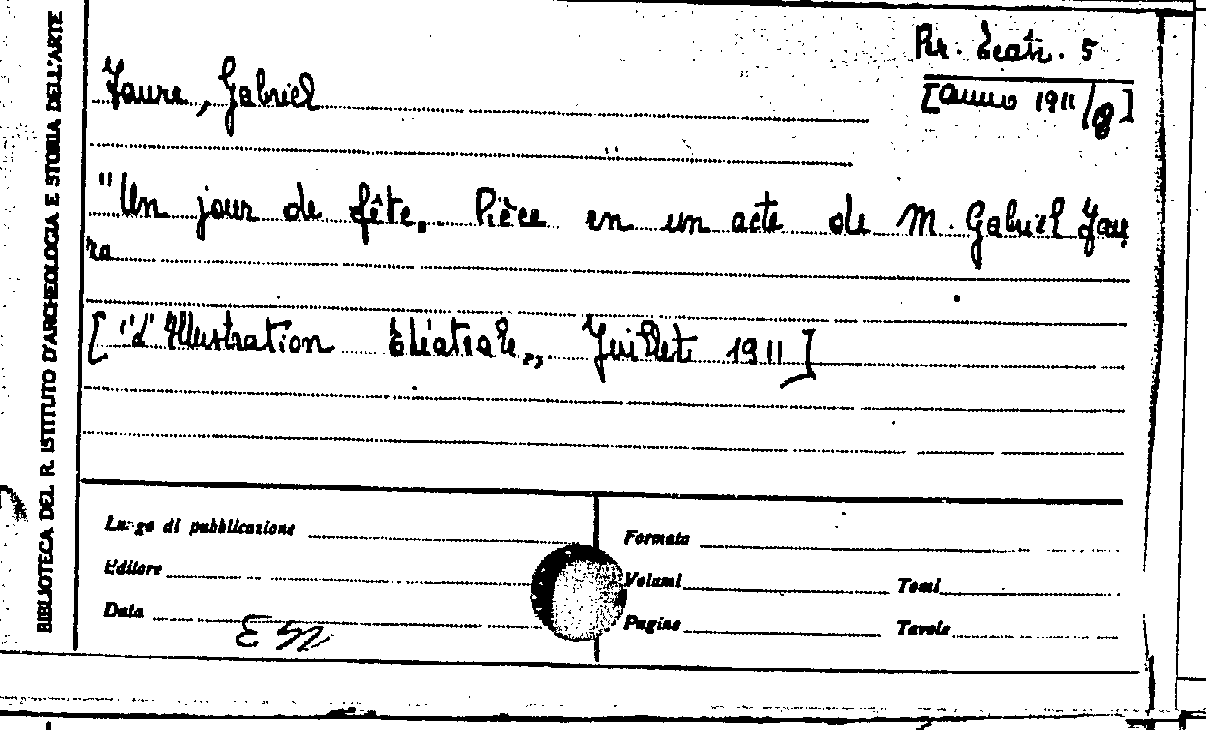 BIBLIOTECA DEL R. ISTITUTO D'ARCHEOLOGIA E STORIA DELL'ARTE
Riv. Teatr. 5
[anno 1911/8]
Faure, Gabriel
"Un jour de fête. Pièce en un acte de M. Gabriel Fau
re
["L'Illustration théatrale", Juillet 1911]
Luogo di pubblicazione
Formato
Editore
Volumi
Tomi
Data
Pagine
Tavole